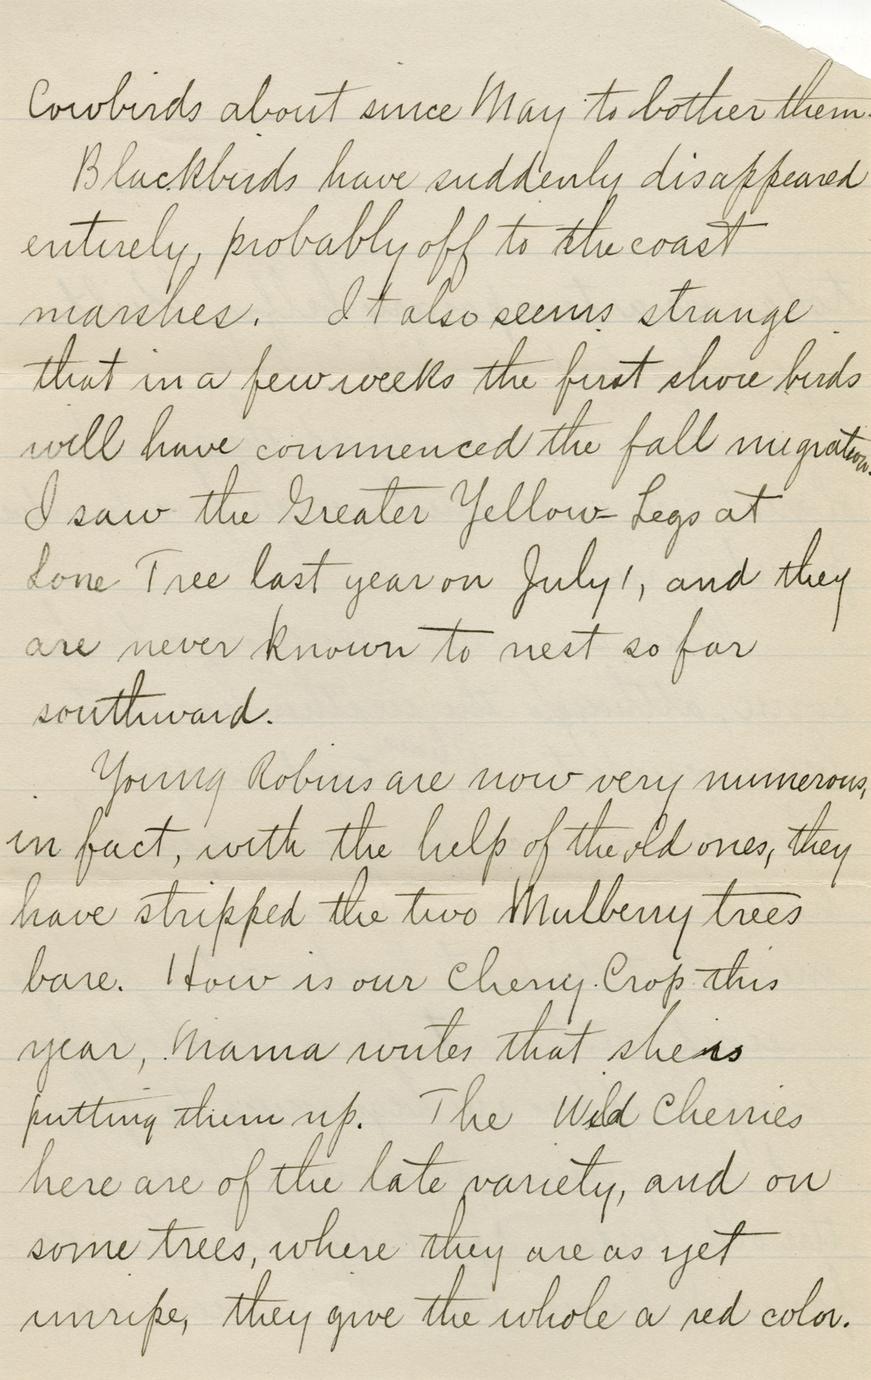 Cowbirds about since May to bother them.
Blackbirds have suddenly disappeared
entirely, probably off to the coast
marshes. It also seems strange
that in a few weeks the first shore birds
will have commenced the fall migration.
I saw the Greater Yellow-Legs at
Lone Tree last year on July 1, and they
are never known to nest so far
southward.
Young Robins are now very numerous,
in fact, with the help of the old ones, they
have stripped the two Mulberry trees
bare. How is our Cherry Crop this
year, Mama writes that she is
putting them up. The Wild Cherries
here are of the late variety, and on
some trees, where they are as yet
unripe, they give the whole a red color.